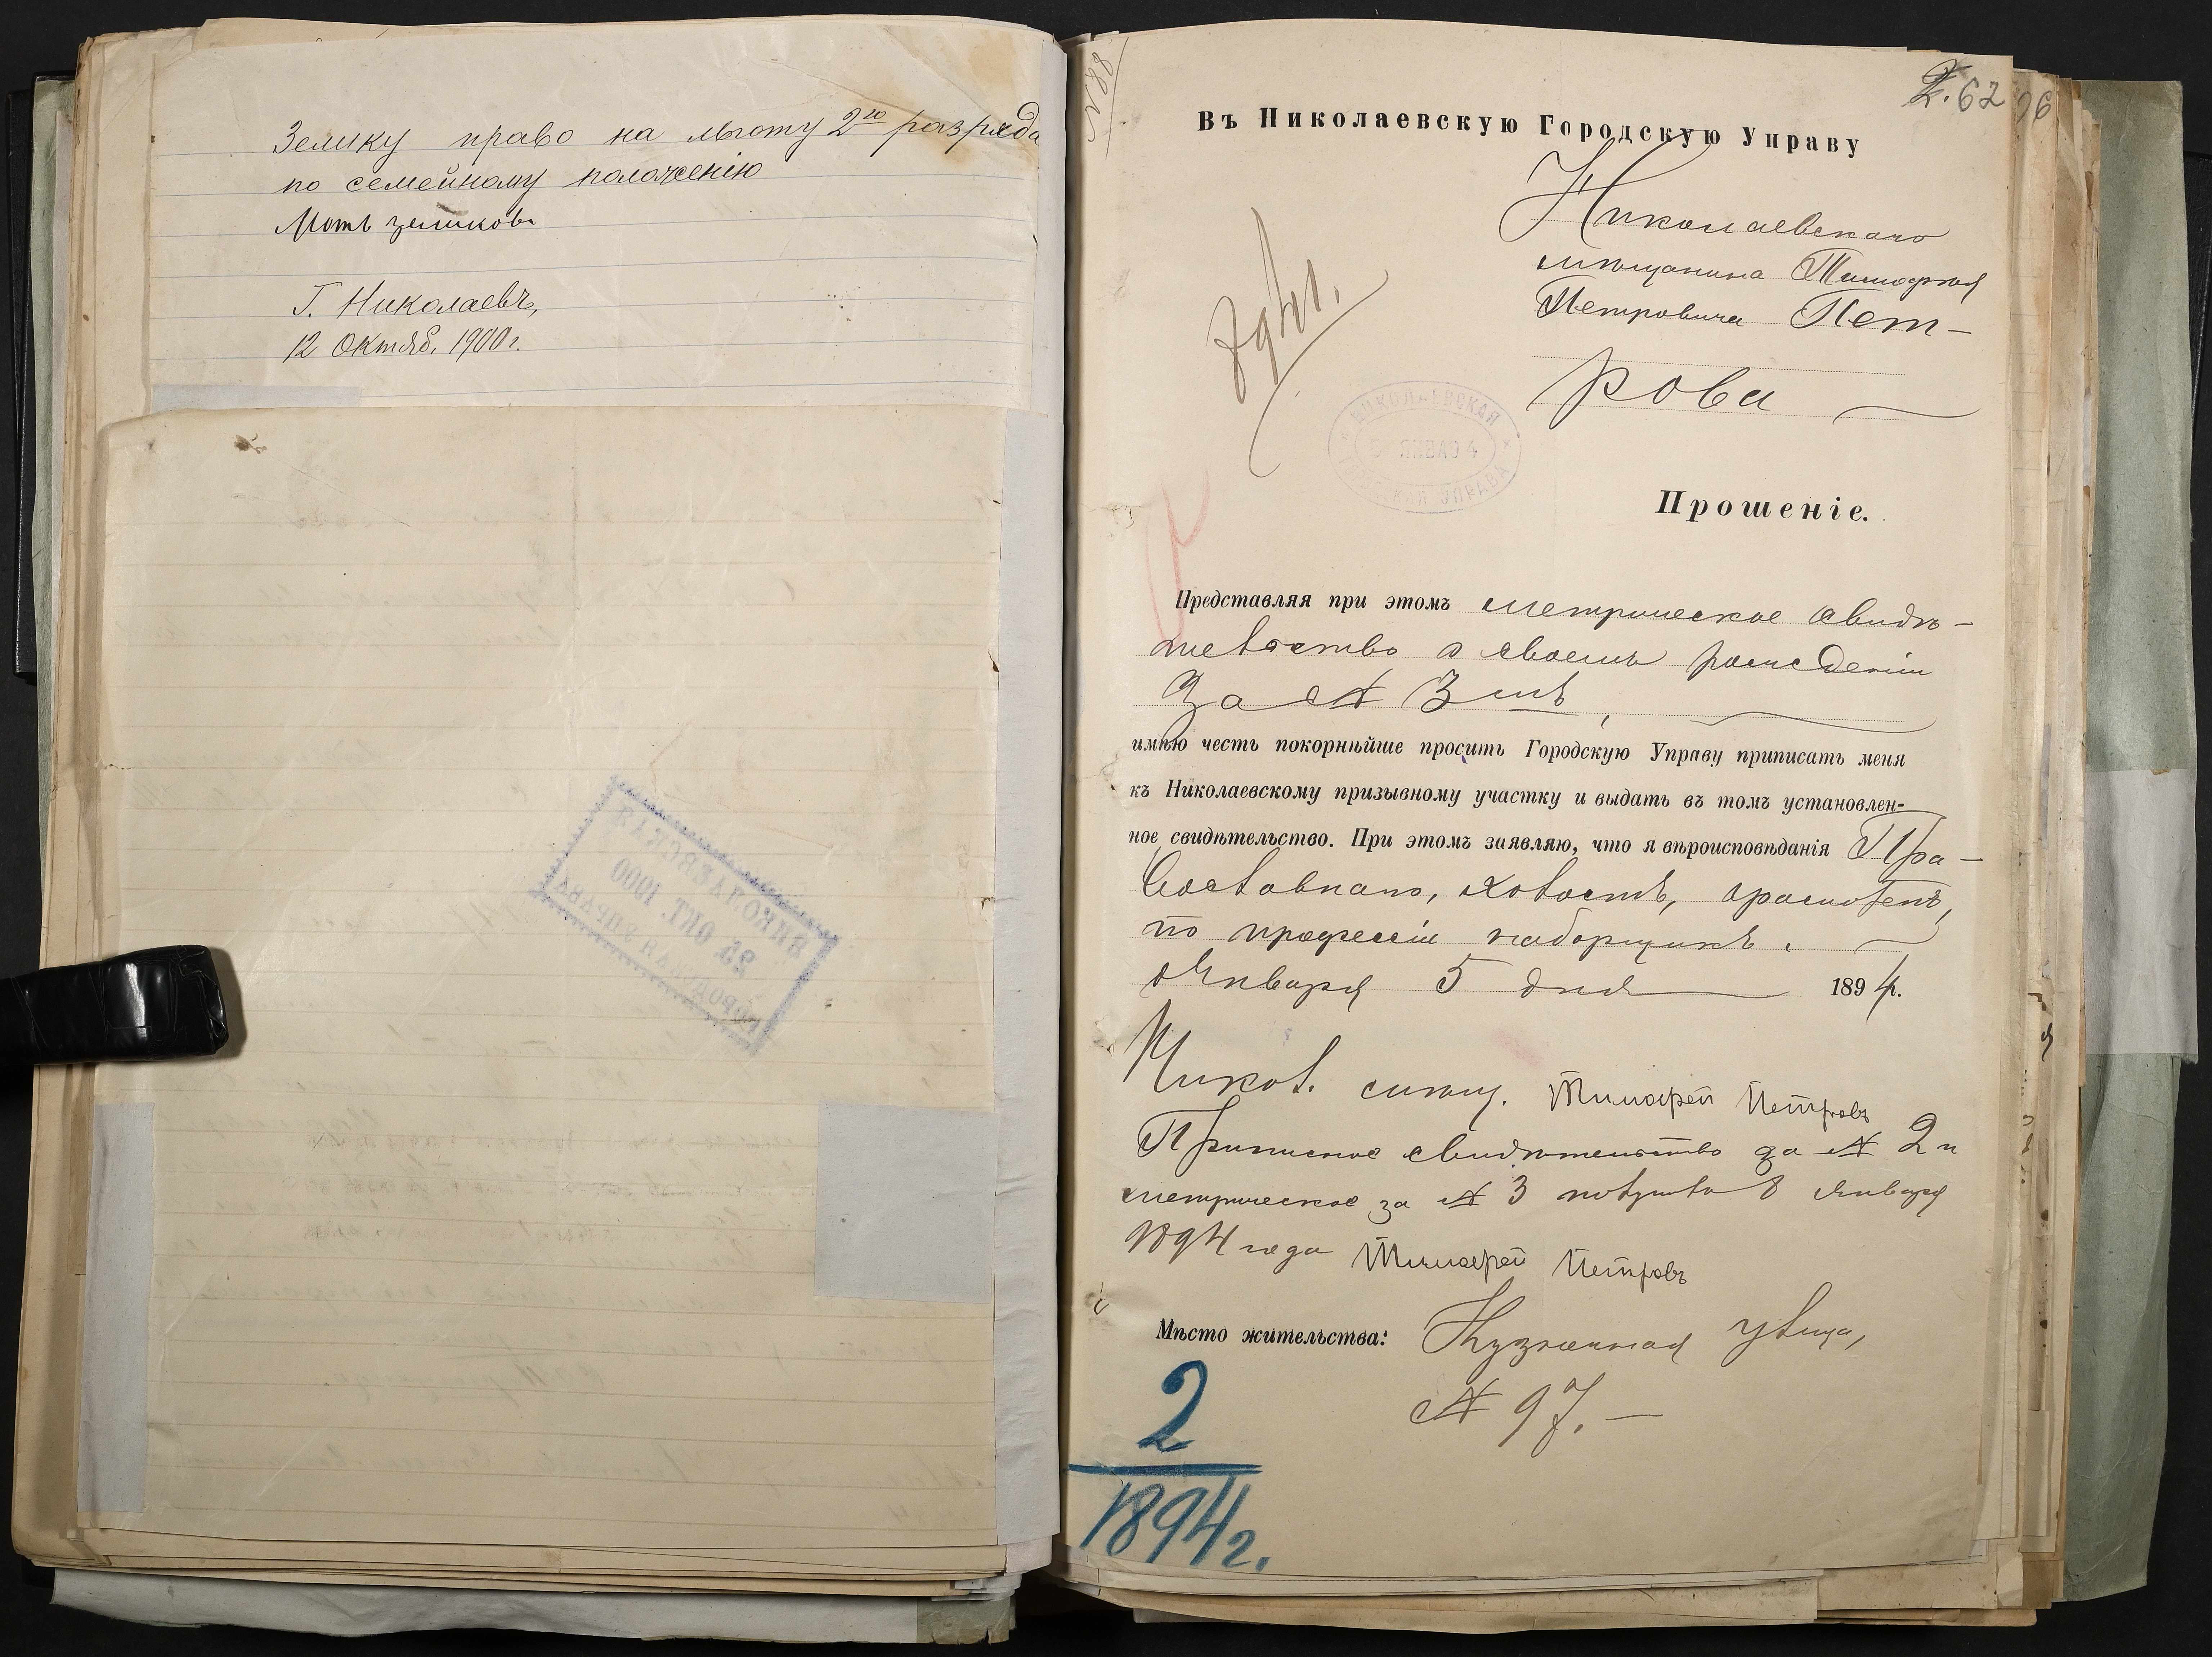 Земику право на льготу 2го разряда
по семейному положенію
Мотъ
Г. Николаевъ,
12 Октяб. 1900 г.
НИКОЛАЕВСКАЯ
25 ОКТ. 1900
ГОРОДСКАЯ УПРАВА
62
Въ Николаевскую Городскую Управу
Николаевскаго
мѣщанина Тимофея
Петровича Пет-
рова
НИКОЛАЕВСКАЯ
ЯНВ 94
ГОРОДСКАЯ УПРАВА
Прошеніе.
Представляя при этомъ метрическое свидѣ-
тельство о своемъ рожденіи
За № 3мъ,
имѣю честь покорнѣйше просить Городскую Управу приписать меня
къ Николаевскому призывному участку и выдать въ томъ установлен-
ное свидѣтельство. При этомъ заявляю, что я вѣроисповѣданія Пра-
вославнаго, холостъ, грамотенъ,
по професіи наборщикъ.
Января 5 дня 1894 г.
Никол. мѣщ. Тимофей Петровъ
Приписное свидѣтельство за № 2 и
метрическое за № 3 получилъ 8 Января
1894 года Тимофей Петровъ
Мѣсто жительства: Кузнечная улица,
№ 97.
2
1894 г.